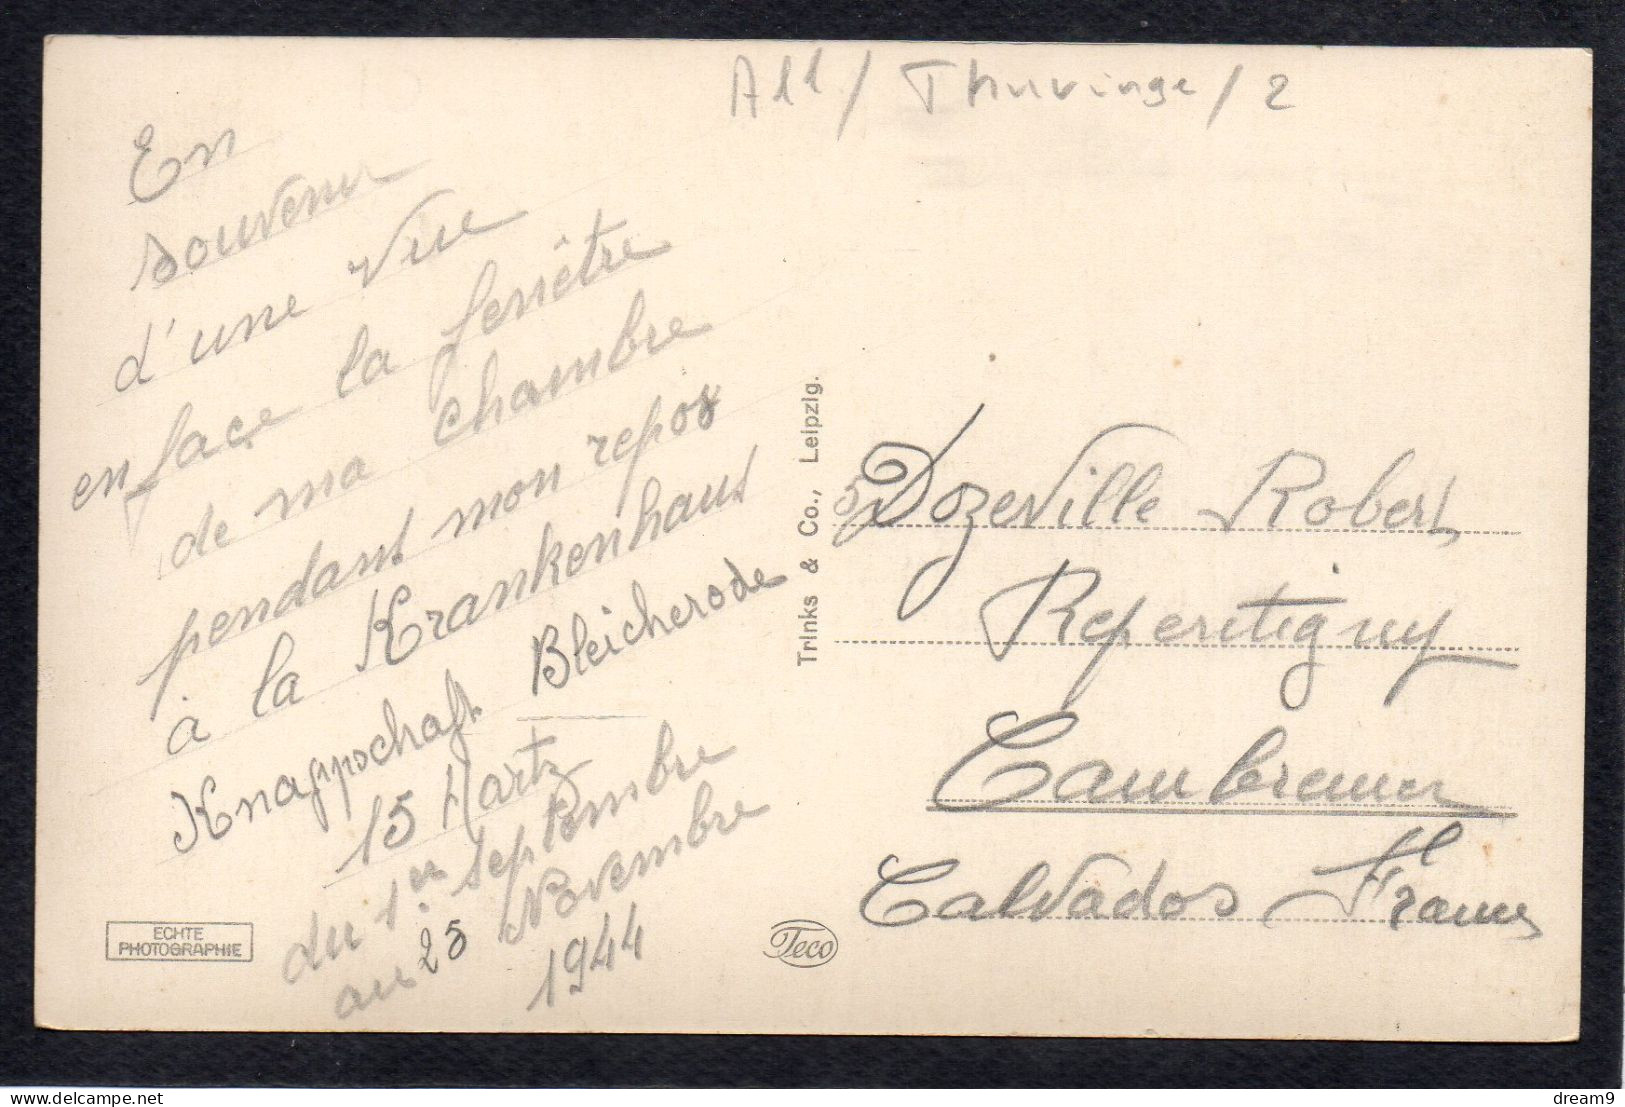 All / Thuringe / 2
En
souvenir
d'une vue
en face la fenêtre
de ma chambre
pendant mon repos
à la Krankenhaus
Knappschaft Bleicherode
15 Hartz
du 1er septembre
au 25 Novembre
1944
ECHTE
PHOTOGRAPHIE
Teco
Trinks & Co., Leipzig.
Dozeville Robert
Repentigny
Cambremer
Calvados France
delcampe.net
dream9